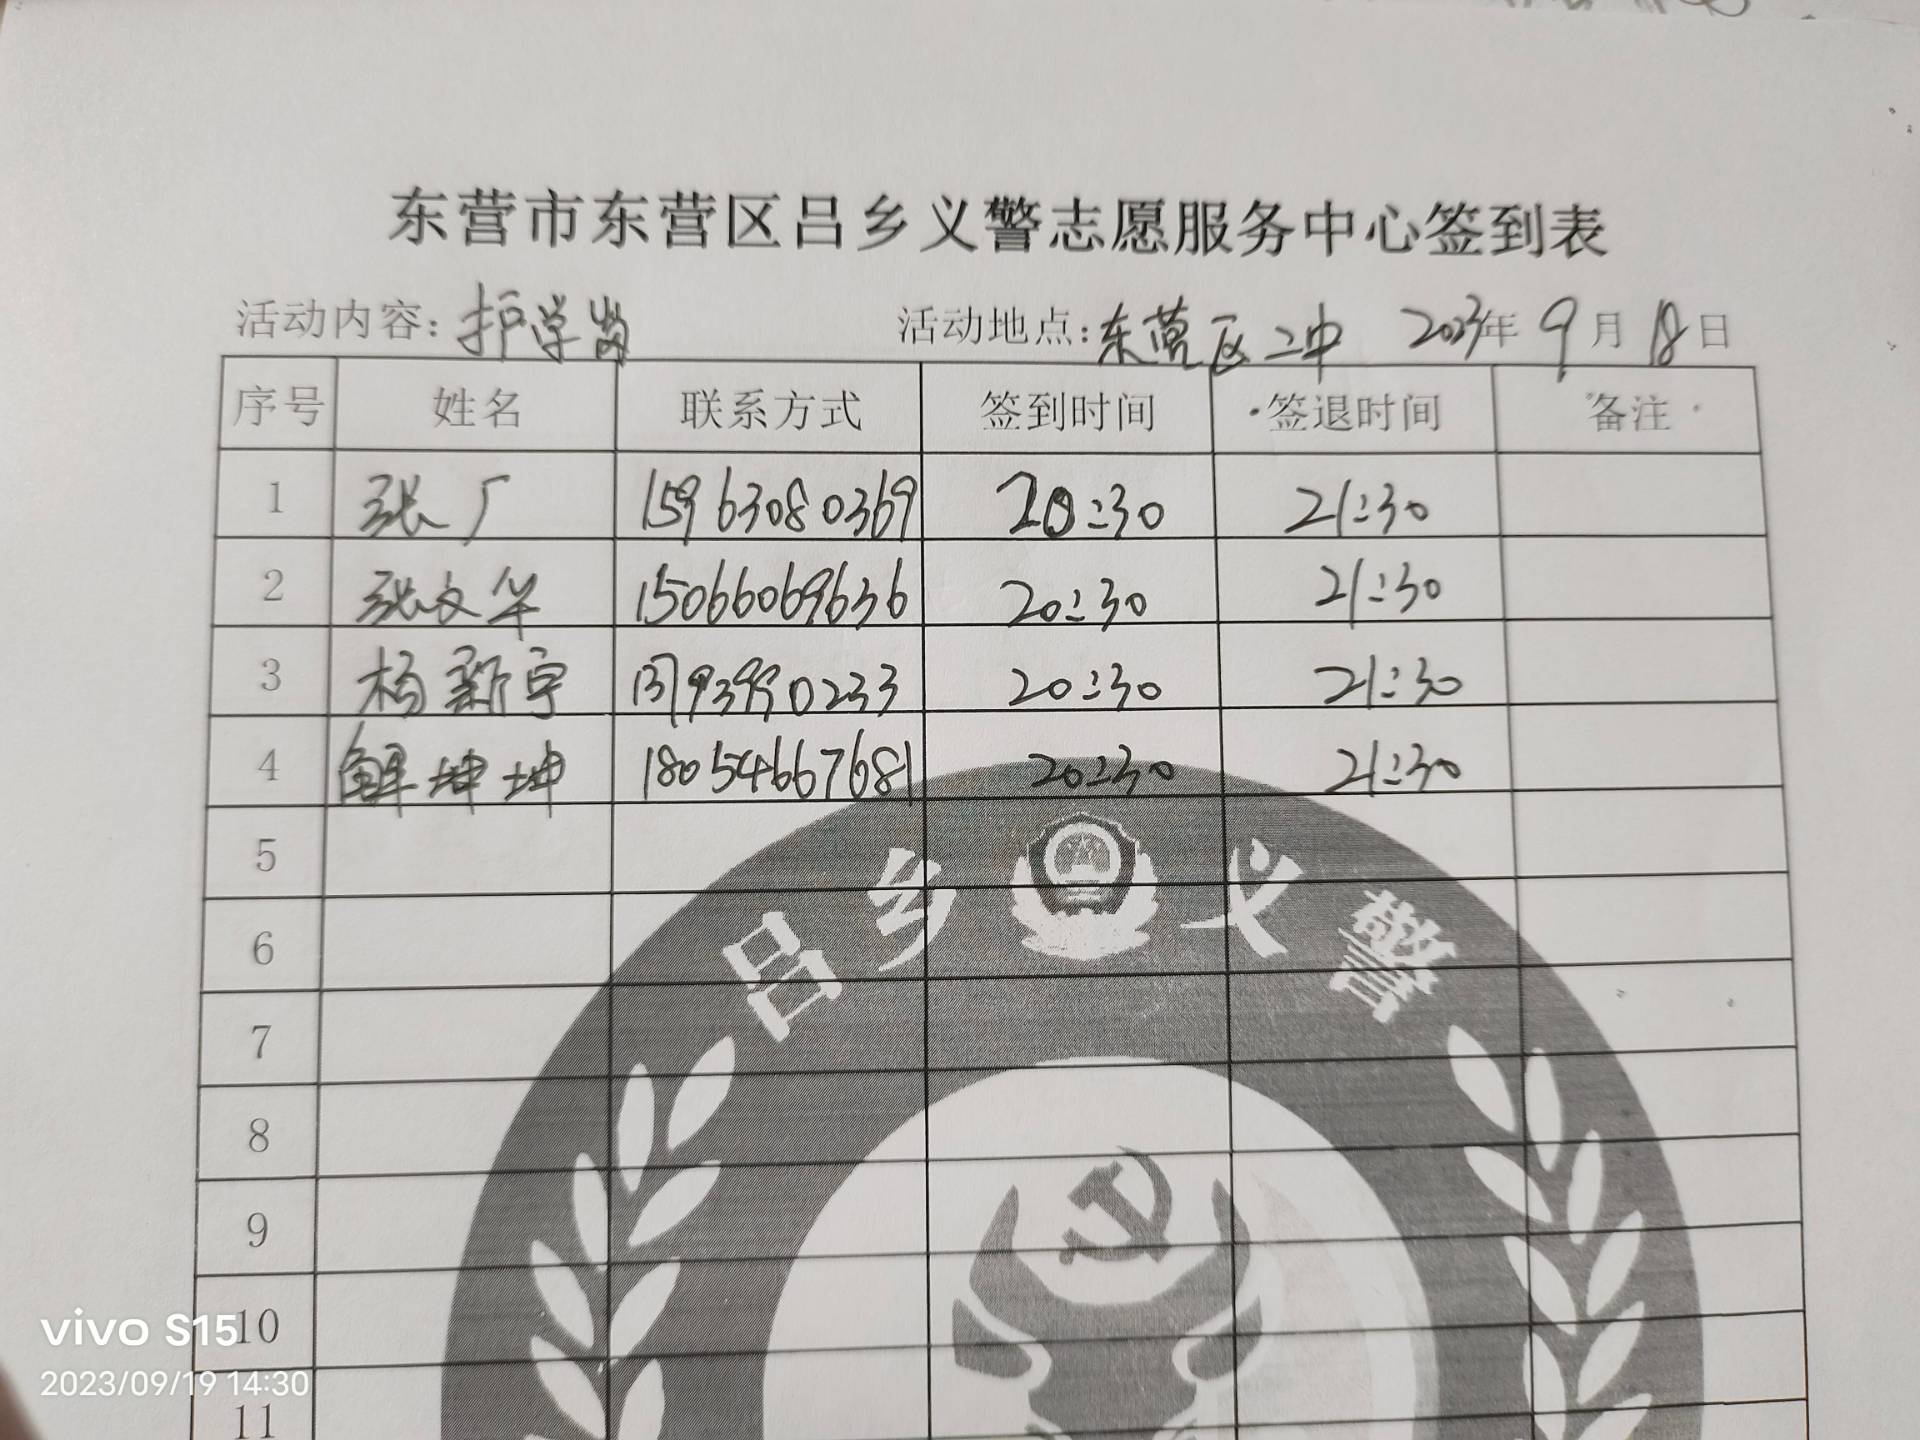 东营市东营区吕乡义警志愿服务中心签到表
活动内容：护学岗 活动地点：东营区二中 2023年9月18日
序号 姓名 联系方式 签到时间 签退时间 备注
1 张广 15963080369 20:30 21:30
2 张文华 15066069636 20:30 21:30
3 杨新宇 13793990233 20:30 21:30
4 鲜坤坤 18054667681 20:30 21:30
5
吕乡义警
6
7
8
9
10
11
vivo S15
2023/09/19 14:30